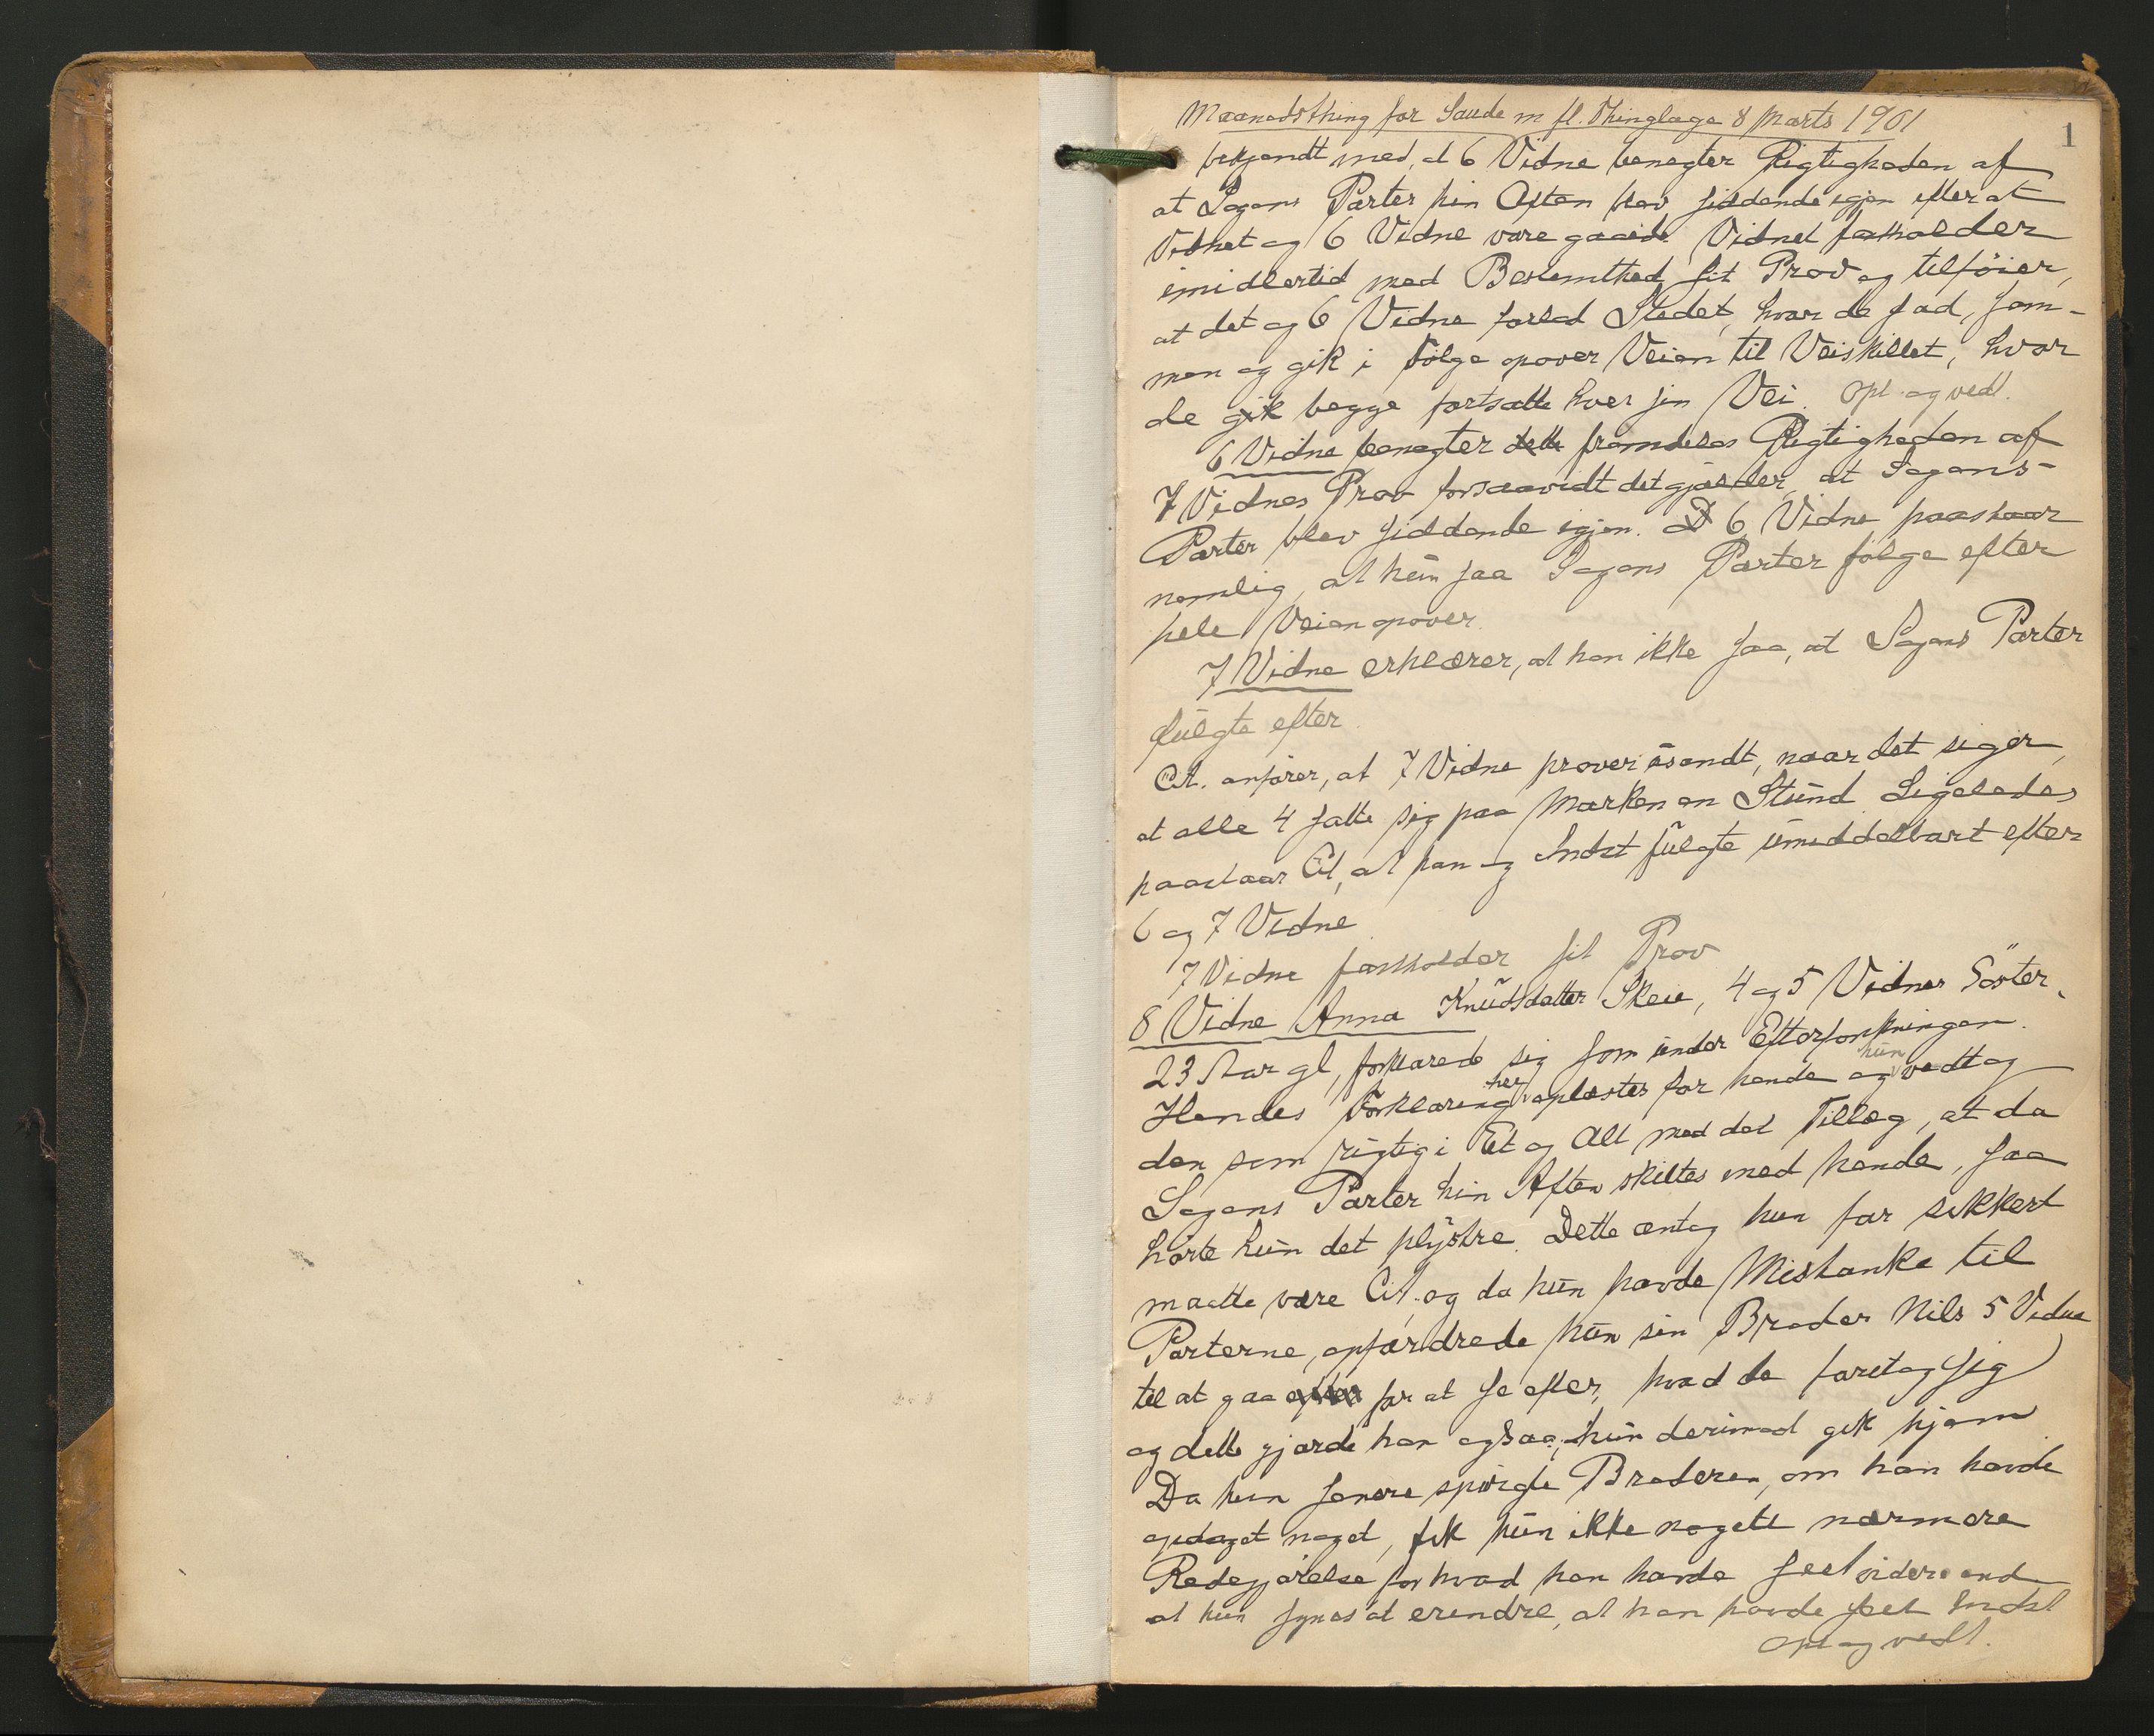 Maanedsthing for Saude m fl. Thinglage 8 Marts 1901
1
bekjendt med, at 6 Vidne benegter Rigtigheden af
at Sagens Parter hin Aften blev siddende igjen efterat
Vidnet og 6 Vidne vare gaaede. Vidnet fastholder
imidlertid med Bestemthed sit Prov og tilföier,
at det og 6 Vidne forlod Stedet, hvor de sad, sam-
men og gik i Fölge opover Veien til Veiskillet, hvor
de gik begge fortsatte hver sin Vei. Opl. og vedt.
6 Vidne benegter dette fremdeles Rigtigheden af
7 Vidnes Prov forsaavidt det gjælder, at Sagens
Parter blev siddende igjen. D 6 Vidne paastaar
nemlig, at hun saa Sagens Parter fölge efter
hele Veien opover.
7 Vidne erklærer, at han ikke saa, at Sagens Parter
fulgte efter.
Cit. anförer, at 7 Vidne prover usandt, naar det siger,
at alle 4 satte sig paa Marken en Stund. Ligeledes
paastaar Cit, at han og Indst fulgte umiddelbart efter
6 og 7 Vidne
7 Vidne fastholder sit Prov
8 Vidne Anna Knudsdatter Skeie, 4 og 5 Vidnes Söster,
23 Aar gl, forklarede sig som under Efterforskningen.
Hendes Forklaring her oplæstes for hende og hun vedtog
den som rigtig i Et og Alt med det Tillæg, at da
Sagens Parter hin Aften skiltes med hende, saa
hörte hun det plystre. Dette antog hun for sikkert
maatte være Cit. og da hun havde Mistanke til
Parterne, opfordrede hun sin Broder Nils 5 Vidne
til at gaa efter for at se efter, hvad de foretog sig
og dette gjorde han ogsaa; hun derimod gik hjem.
Da hun senere spurgte Broderen, om han havde
opdaget noget, fik hun ikke nogen nærmere
Redegjörelse for hvad han havde seet videre end
at hun synes at erindre, at han havde seet Indst
Opl og vedt.